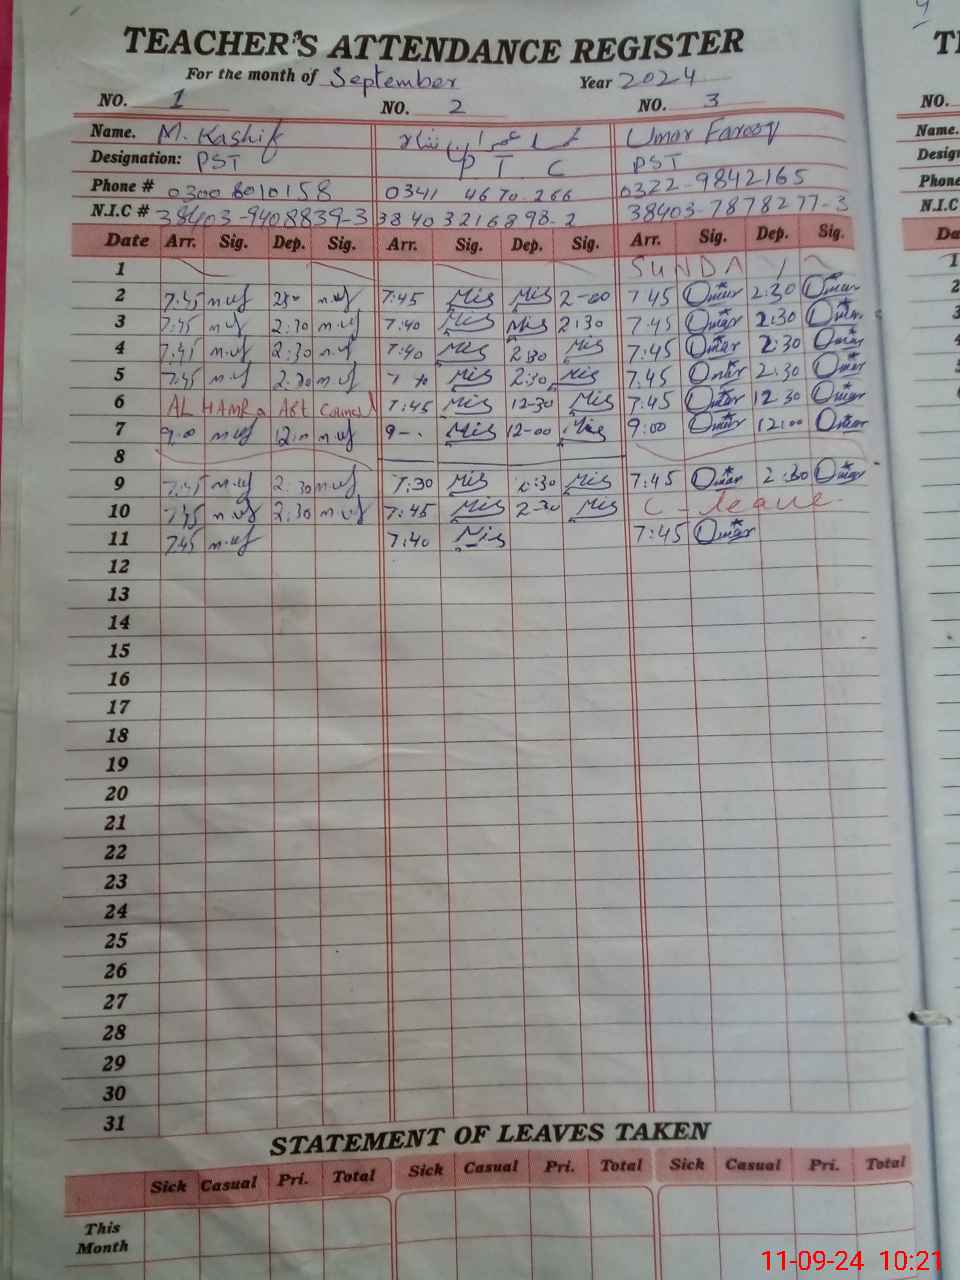 TEACHER'S ATTENDANCE REGISTER
For the month of September Year 2024
NO. 1 NO. 2 NO. 3
Name. M. Kashif Umar Farooq
Designation: PST P T C PST
Phone # 0300 8010158 0341 4670.266 0322-9842165
N.I.C # 38403-9408839-3 38403216898-2 38403-7878277-3
Date Arr. Sig. Dep. Sig. Arr. Sig. Dep. Sig. Arr. Sig. Dep. Sig.
1 SUNDAY
2 7:45 7:45 2-00 7:45 Omar 2:30 Omar
3 7:45 2:30 7:40 2:30 7:45 Omar 2:30 Omar
4 7:45 2:30 7:40 2:30 7:45 Omar 2:30 Omar
5 7:45 2:30 2:30 7:45 Omar 2:30 Omar
6 AL HAMRA Art Council 7:45 12-30 7:45 Omar 12 30 Omar
7 9:00 9-- 12-00 9:00 Omar 12:00 Omar
8
9 7:45 2:30 7:30 2:30 7:45 Omar 2:30 Omar
10 7:45 2:30 7:45 2-30 C-leave
11 7:45 7:40 7:45 Omar
12
13
14
15
16
17
18
19
20
21
22
23
24
25
26
27
28
29
30
31
STATEMENT OF LEAVES TAKEN
Sick Casual Pri. Total Sick Casual Pri. Total Sick Casual Pri. Total
This
Month
NO.
Name.
Phone
N.I.C
11-09-24 10:21